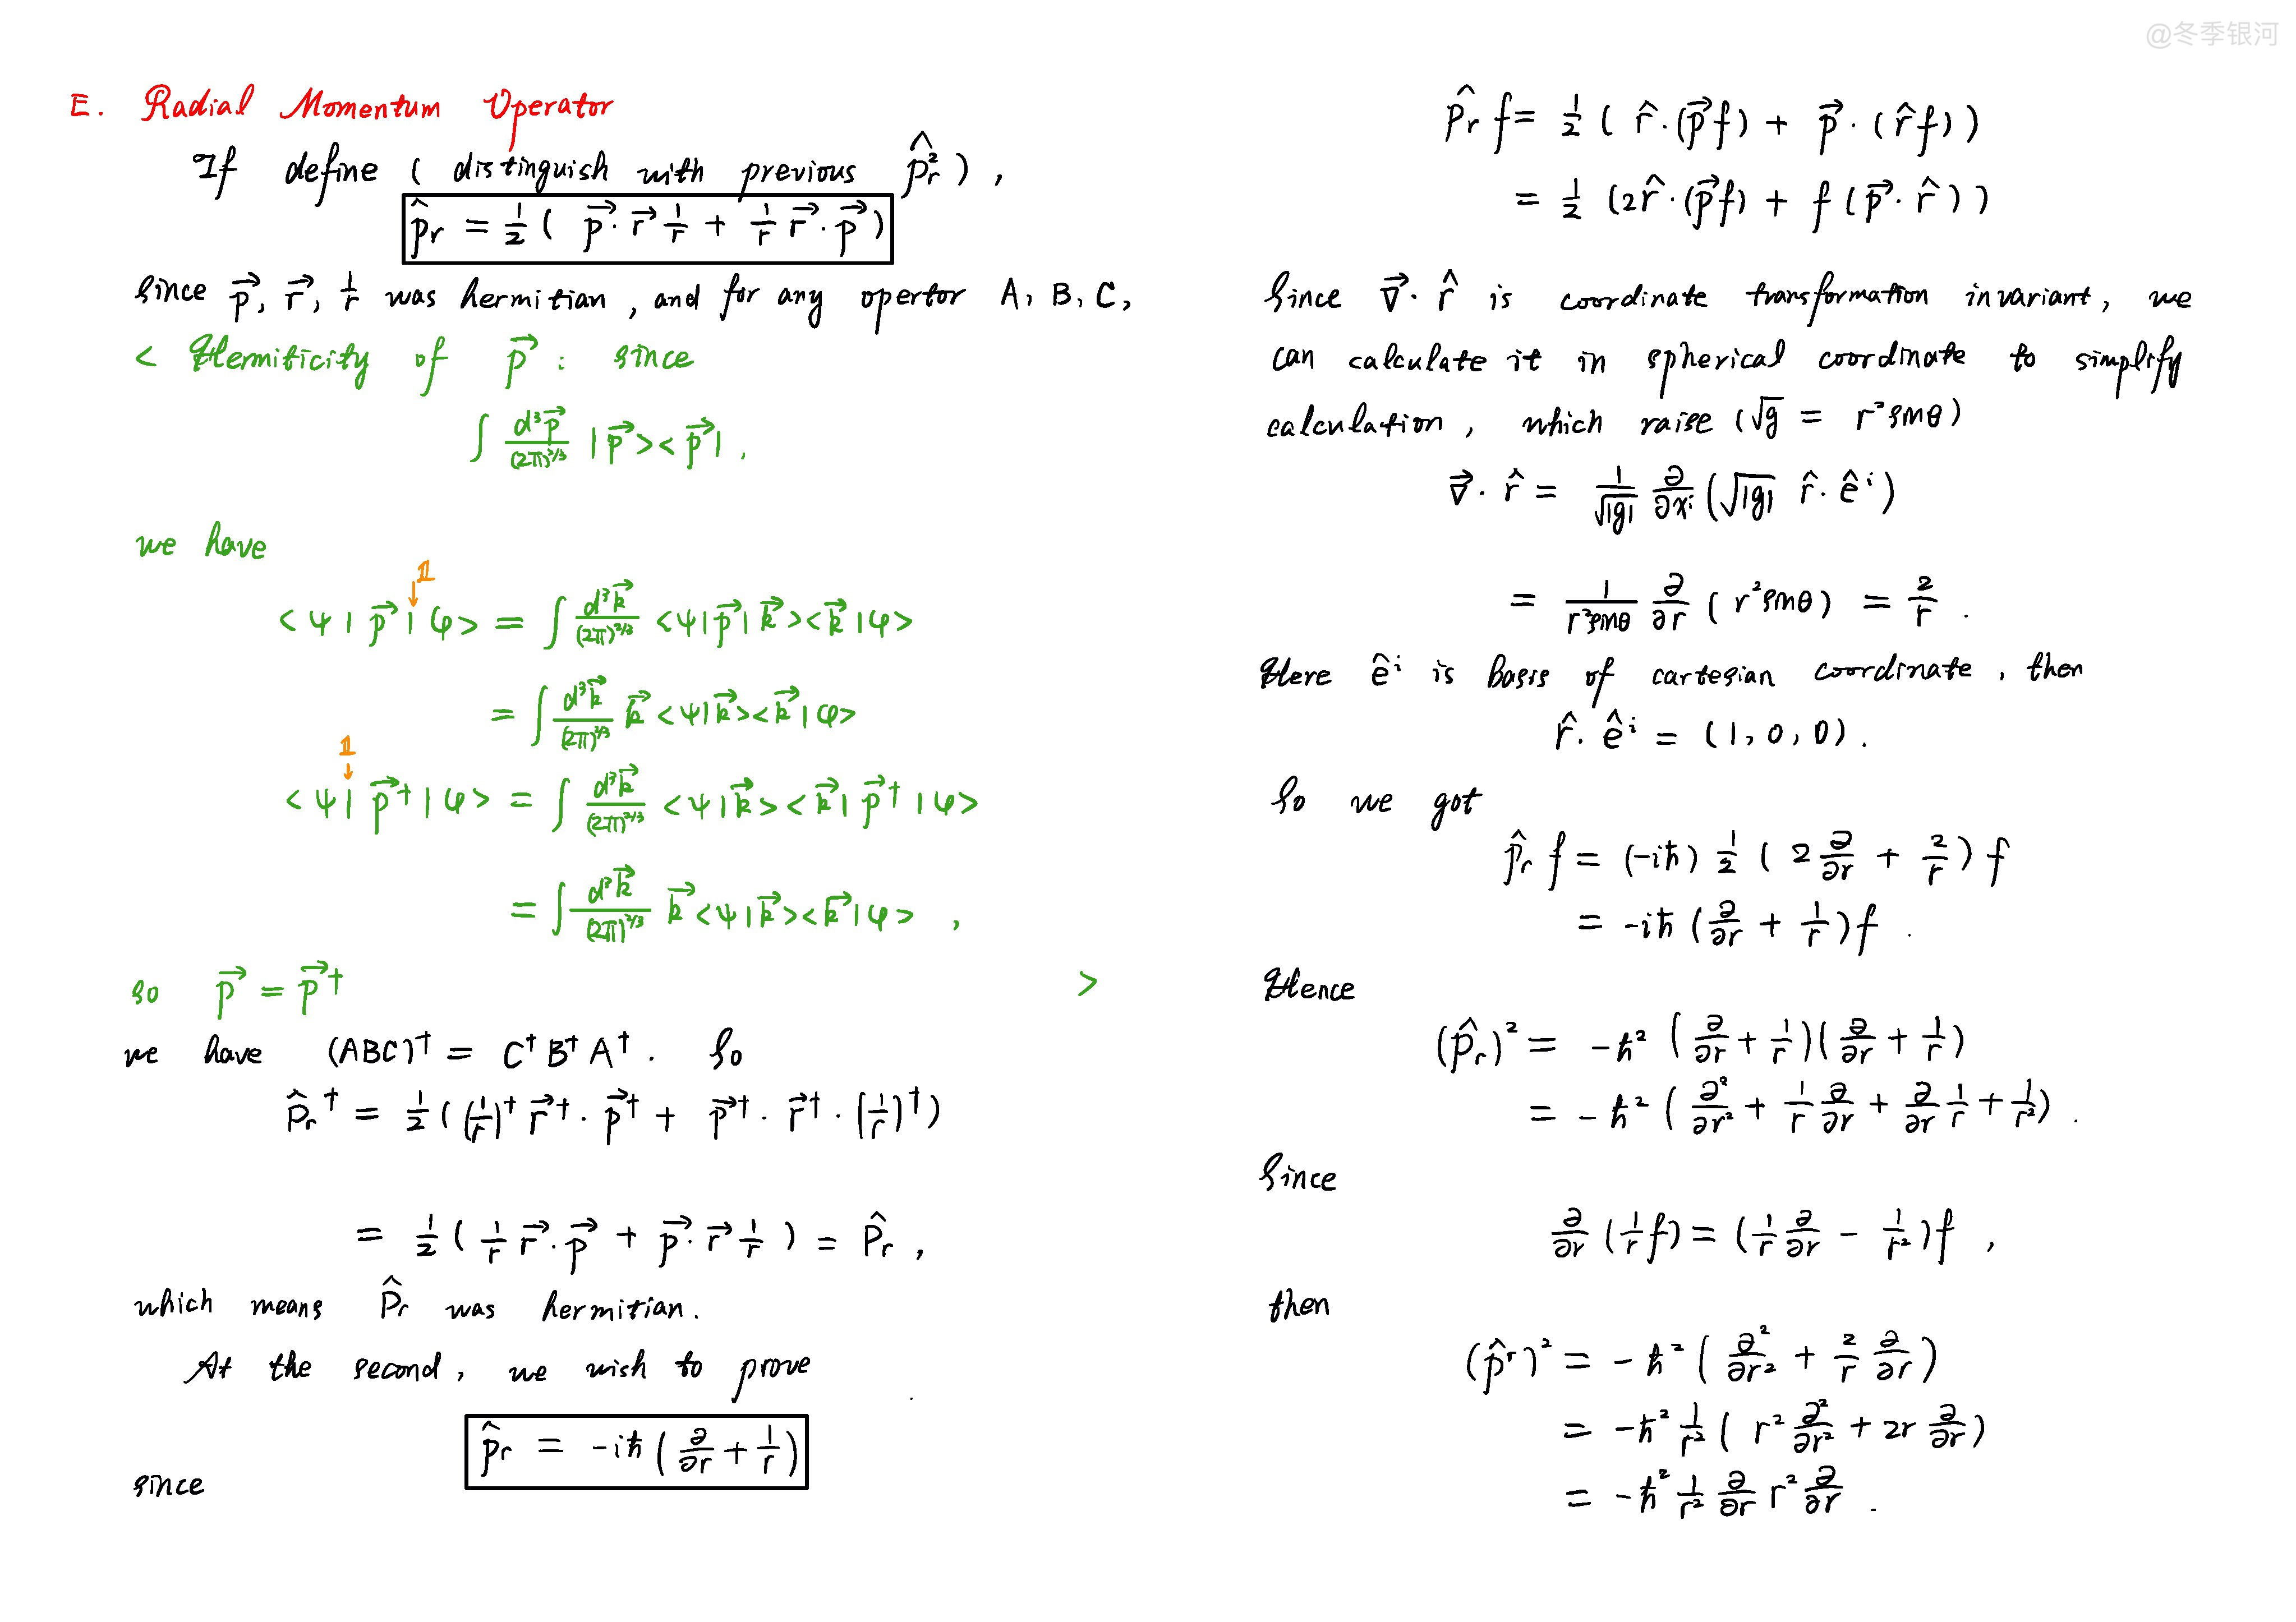 @冬季银河
E. Radial Momentum Operator
If define ( distinguish with previous $\hat{p_r^2}$ ) ,
$\hat{p}_r = \frac{1}{2} ( \vec{p} \cdot \vec{r} \frac{1}{r} + \frac{1}{r} \vec{r} \cdot \vec{p} )$
Since $\vec{p}, \vec{r}, \frac{1}{r}$ was hermitian , and for any opertor A, B, C,
< Hermiticity of $\vec{p}$ : since
$\int \frac{d^3\vec{p}}{(2\pi)^{2/3}} |\vec{p}><\vec{p}|$ .
we have
𝟙
$<\psi | \vec{p} | \varphi> = \int \frac{d^3\vec{k}}{(2\pi)^{2/3}} <\psi|\vec{p}|\vec{k}><\vec{k}|\varphi>$
$= \int \frac{d^3\vec{k}}{(2\pi)^{2/3}} \vec{k} <\psi|\vec{k}><\vec{k}|\varphi>$
𝟙
$<\psi | \vec{p}^\dagger | \varphi> = \int \frac{d^3\vec{k}}{(2\pi)^{2/3}} <\psi|\vec{k}><\vec{k}|\vec{p}^\dagger|\varphi>$
$= \int \frac{d^3\vec{k}}{(2\pi)^{2/3}} \vec{k} <\psi|\vec{k}><\vec{k}|\varphi>$ ,
So $\vec{p} = \vec{p}^\dagger$ >
we have $(ABC)^\dagger = C^\dagger B^\dagger A^\dagger$ . So
$\hat{p}_r^\dagger = \frac{1}{2} ( (\frac{1}{r})^\dagger \vec{r}^\dagger \cdot \vec{p}^\dagger + \vec{p}^\dagger \cdot \vec{r}^\dagger \cdot (\frac{1}{r})^\dagger )$
$= \frac{1}{2} ( \frac{1}{r} \vec{r} \cdot \vec{p} + \vec{p} \cdot \vec{r} \frac{1}{r} ) = \hat{p}_r$ ,
which means $\hat{p}_r$ was hermitian.
At the second, we wish to prove
$\hat{p}_r = -i\hbar ( \frac{\partial}{\partial r} + \frac{1}{r} )$
since
$\hat{p}_r f = \frac{1}{2} ( \hat{r} \cdot (\vec{p} f) + \vec{p} \cdot (\hat{r} f) )$
$= \frac{1}{2} ( 2\hat{r} \cdot (\vec{p} f) + f ( \vec{p} \cdot \hat{r} ) )$
Since $\vec{\nabla} \cdot \hat{r}$ is coordinate transformation invariant, we
can calculate it in spherical coordinate to simplify
calculation , which raise ($\sqrt{g} = r^2 \sin\theta$)
$\vec{\nabla} \cdot \hat{r} = \frac{1}{\sqrt{|g|}} \frac{\partial}{\partial x^i} ( \sqrt{|g|} \hat{r} \cdot \hat{e}^i )$
$= \frac{1}{r^2 \sin\theta} \frac{\partial}{\partial r} ( r^2 \sin\theta ) = \frac{2}{r}$ .
Here $\hat{e}^i$ is basis of cartesian coordinate , then
$\hat{r} \cdot \hat{e}^i = (1, 0, 0)$ .
So we got
$\hat{p}_r f = (-i\hbar) \frac{1}{2} ( 2\frac{\partial}{\partial r} + \frac{2}{r} ) f$
$= -i\hbar ( \frac{\partial}{\partial r} + \frac{1}{r} ) f$ .
Hence
$(\hat{p}_r)^2 = -\hbar^2 ( \frac{\partial}{\partial r} + \frac{1}{r} ) ( \frac{\partial}{\partial r} + \frac{1}{r} )$
$= -\hbar^2 ( \frac{\partial^2}{\partial r^2} + \frac{1}{r} \frac{\partial}{\partial r} + \frac{\partial}{\partial r} \frac{1}{r} + \frac{1}{r^2} )$ .
Since
$\frac{\partial}{\partial r} ( \frac{1}{r} f ) = ( \frac{1}{r} \frac{\partial}{\partial r} - \frac{1}{r^2} ) f$ ,
then
$(\hat{p}^r)^2 = -\hbar^2 ( \frac{\partial^2}{\partial r^2} + \frac{2}{r} \frac{\partial}{\partial r} )$
$= -\hbar^2 \frac{1}{r^2} ( r^2 \frac{\partial^2}{\partial r^2} + 2r \frac{\partial}{\partial r} )$
$= -\hbar^2 \frac{1}{r^2} \frac{\partial}{\partial r} r^2 \frac{\partial}{\partial r}$ .